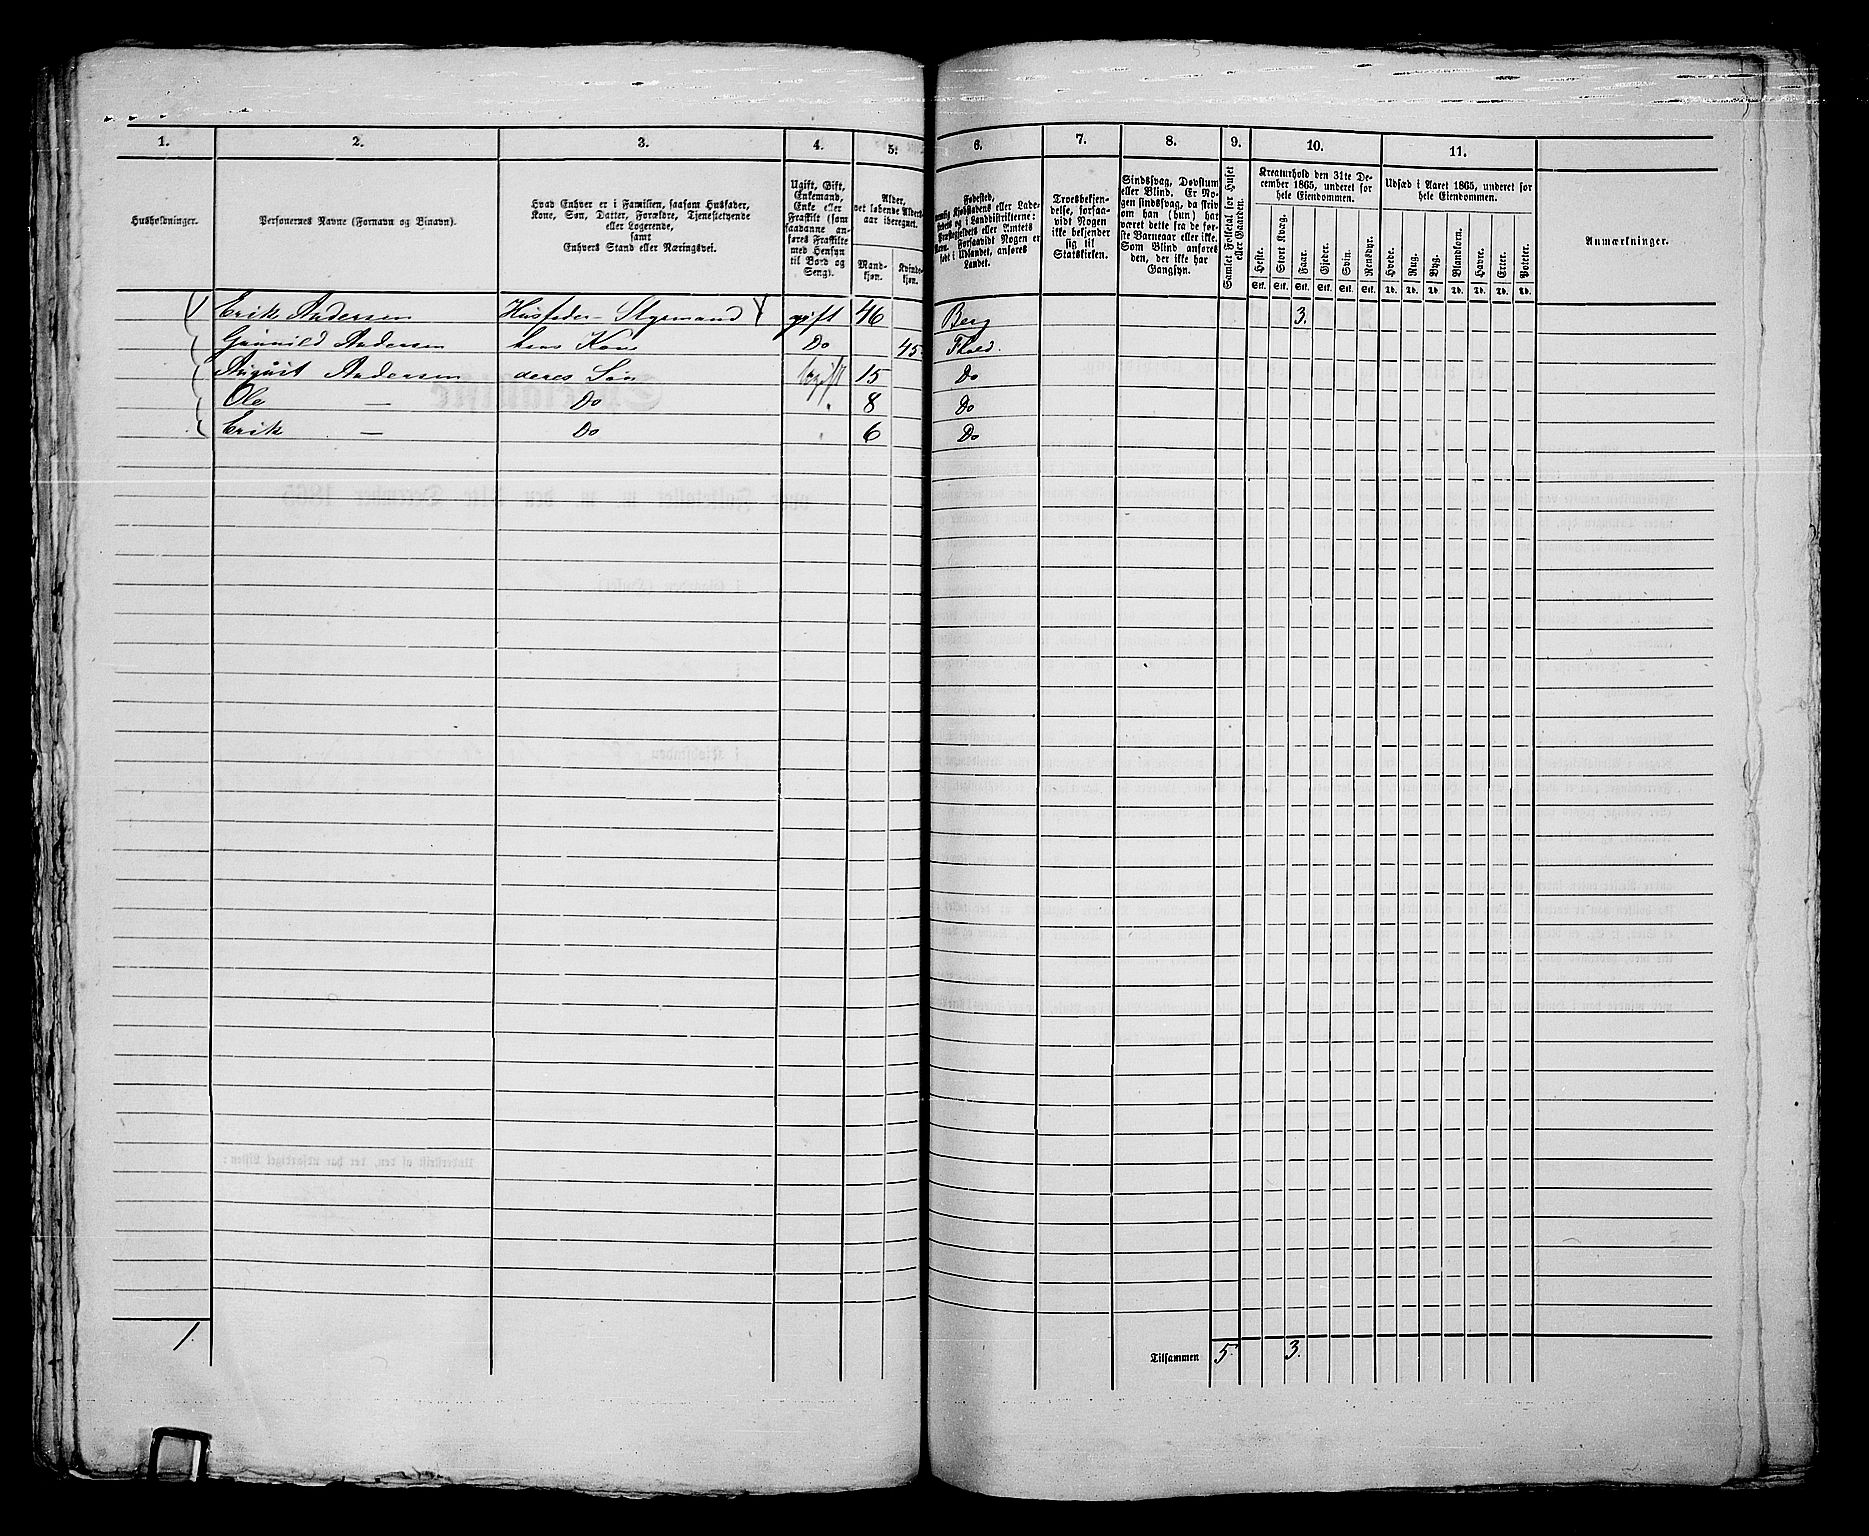 1. 2. 3. 4. 5. 6. 7. 8. 9. 10. 11.
Husholdninger.
Personernes Navne (Fornavn og Binavn).
Hvad Enhver er i Familien, saasom Husfader,
Kone, Søn, Datter, Forældre, Tjenestetyende
eller Logerende,
samt
Enhvers Stand eller Næringsvei.
Ugift, Gift,
Enkemand,
Enke eller
Fraskilt (som
saadanne an-
føres Fraskilte
med Hensyn
til Bord og
Seng).
Alder,
det løbende Alders-
aar iberegnet.
Mand-
kjøn.
Kvinde-
kjøn.
Fødested,
nemlig Kjøbstadens eller Lade-
stedets og i Landdistrikterne:
Præstegjeldets eller Amtets
Navn. Forsaavidt Nogen er
født i Udlandet, anføres
Landet.
Troesbekjen-
delse, forsaa-
vidt Nogen
ikke bekjender
sig til
Statskirken.
Sindssvag, Døvstum
eller Blind. Er No-
gen sindssvag, da skriv
om han (hun) har
været dette fra de før-
ste Barneaar eller ikke.
Som Blind anføres
den, der ikke har
Gangsyn.
Samlet Folketal for Huset
eller Gaarden.
Kreaturhold den 31te De-
cember 1865, underet for
hele Eiendommen.
Heste. Stort Kvæg. Faar. Gjeder. Svin. Rensdyr.
Stk. Stk. Stk. Stk. Stk. Stk.
Udsæd i Aaret 1865, underet for
hele Eiendommen.
Hvede. Rug. Byg. Blandkorn. Havre. Erter. Poteter.
Td. Td. Td. Td. Td. Td. Td.
Anmærkninger.
1 Erik Andersen Husfader Styrmand gift 46 Berg 3.
Gunnild Andersen hans Kone Do 45 Fhald.
August Andersen deres Søn Ugift 15 Do
Ole — Do 8 Do
Erik — Do 6 Do
1. Tilsammen 5. 3.